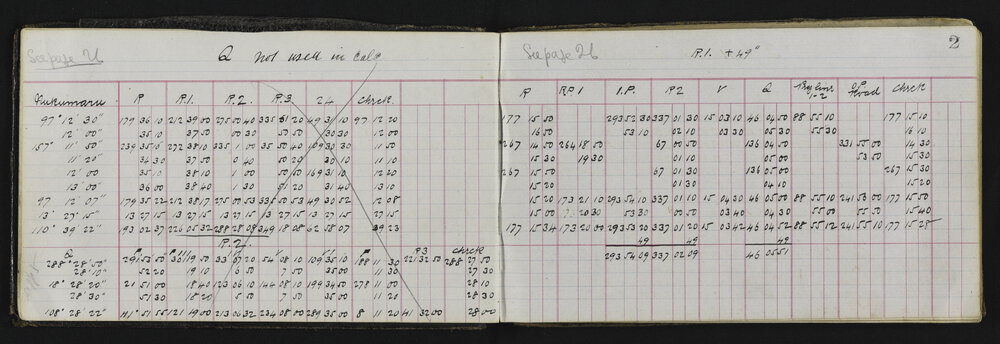 See page 21
Q not used in calc
Pukumaru R R.1. R.2. R.3. 24 Check.
97° 12' 30" 179 36 10 212 39 00 275 50 40 335 51 20 49 31 10 97 12 20
12' 00" 35 10 37 50 00 30 50 50 30 30 12 00
157° 11' 50" 239 35 10 272 38 10 335 1 00 35 50 40 109 30 30 11 50
11' 20" 34 30 37 50 0 40 50 20 30 10 11 10
12' 00 35 10 38 10 1 00 50 50 169 31 10 12 20
13' 00" 36 00 38 40 1 30 51 20 31 40 13 10
97 12' 07" 179 35 22 212 38 17 275 00 53 335 50 53 49 30 52 12 08
13° 27' 15" 13 27 15 13 27 15 13 27 15 13 27 15 13 27 15 27 15
110° 39' 22" 193 02 37 226 05 32 288 28 08 349 18 08 62 58 07 39 23
R.2.
Q P V P P3 Check
288° 28' 50" 291 53 50 33 07 20 54 08 10 109 35 10 188 11 30 221 32 50 288 27 50
28' 10" 52 20 19 10 6 50 7 50 35 00 11 30 27 30
18° 28' 20" 21 51 00 18 40 123 06 10 144 08 10 199 34 50 278 11 00 28 10
28' 30" 51 30 18 20 5 50 7 50 35 00 11 20 28 30
108° 28' 22" 51 55 121 19 00 213 06 32 234 08 00 289 35 00 8 11 20 41 32 00 28 00
2
See page 26
R.1. + 49"
R RP 1 I.P. P2 V Q 1-2 Road Check
177 15 50 293 52 30 337 01 30 15 03 10 46 04 50 88 55 10 177 15 10
16 00 53 10 02 10 03 30 05 30 55 30 16 10
267 14 50 264 18 50 67 00 50 136 04 50 331 55 00 14 30
15 30 19 30 01 10 05 00 53 50 15 30
267 15 50 67 01 30 136 05 00 267 15 30
15 20 01 30 04 10 15 20
15 20 173 21 10 293 54 10 337 01 10 15 04 30 46 05 00 88 55 10 241 53 00 177 15 50
15 00 20 30 53 30 00 50 03 40 04 30 55 00 55 50 15 40
177 15 34 173 20 00 293 53 20 337 01 20 15 03 42 46 04 52 88 55 12 241 55 10 177 15 28
49 49 49
293 54 09 337 02 09 46 05 51